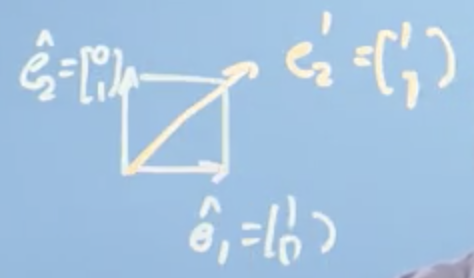 ê₂ = [0 1]
e₂' = [1 1]
ê₁ = [1 0]